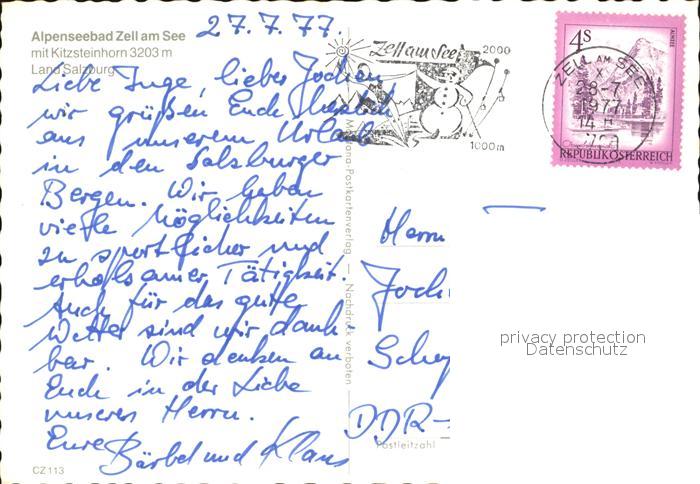 Alpenseebad Zell am See
mit Kitzsteinhorn 3203 m
Land Salzburg
27.7.77.
Liebe Inge, lieber Jochen
wir grüßen Euch herzlich
aus unserem Urlaub
in den Salzburger
Bergen. Wir haben
vielfe Möglichkeiten
zu sportlicher und
erholsamer Tätigkeit.
Auch für das gute
Wetter sind wir dank-
bar. Wir denken an
Euch in der Liebe
unseres Herrn.
Eure Bärbel und Klaus
CZ 113
Postkartenverlag — Nachdruck verboten
Zell am See
2000
1000 m
4S
ALMSEE
REPUBLIK ÖSTERREICH
ZELL AM SEE
28.-7.
1977
14
5700
Herrn
Joch
Sche
DDR-
Postleitzahl
privacy protection
Datenschutz